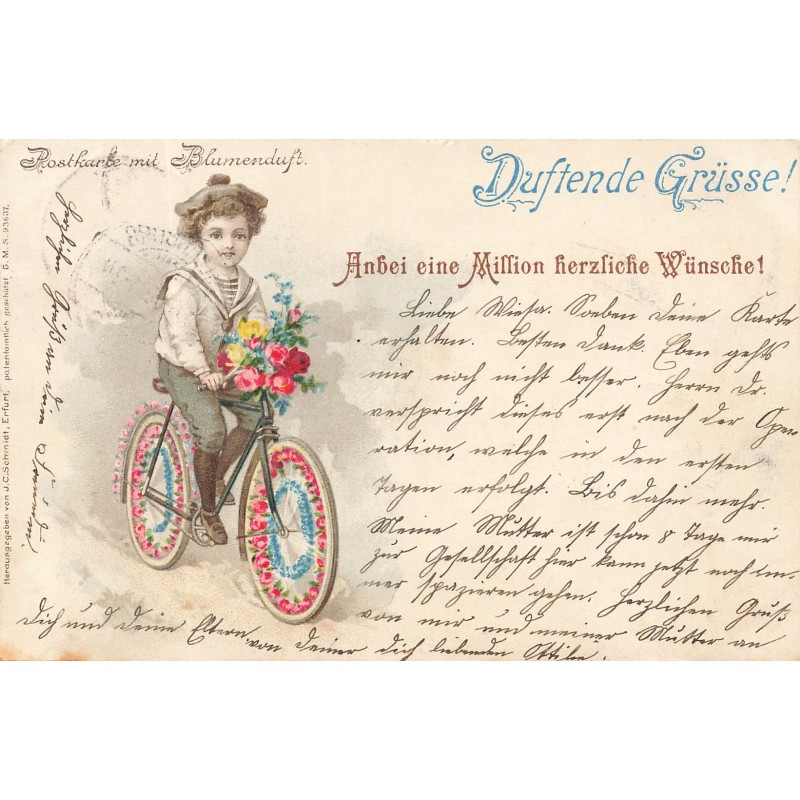 Postkarte mit Blumenduft.
Duftende Grüsse!
Anbei eine Million herzliche Wünsche!
Liebe Wiesa. Soeben deine Karte
erhalten. Besten Dank. Eben gehts
mir noch nicht besser. Herrn Dr.
verspricht dieses erst nach der Ope-
ration, welche in den ersten
Tagen erfolgt. Bis dahin mehr.
Meine Mutter ist schon 8 Tage mir
zur Gesellschaft hier kann jetzt noch im-
mer spazieren gehen. Herzlichen Gruß
von mir und meiner Mutter an
Dich und Deine Eltern von Deiner dich liebenden
Herausgegeben von J.C. Schmidt, Erfurt, patentamtlich geschützt G.M.S. 93637.
Gruß